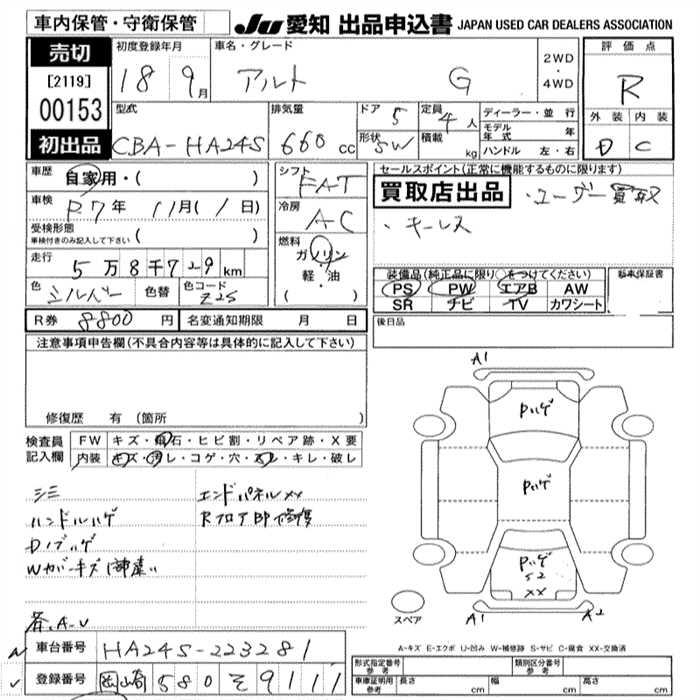 車内保管・守衛保管
JU 愛知 出品申込書 JAPAN USED CAR DEALERS ASSOCIATION
売切
[2119]
00153
初出品
初度登録年月
18 9月
車名・グレード
アルト G
2WD
・
4WD
評価点
R
外装 内装
D C
型式
CBA-HA24S
排気量
660 cc
ドア
5
形状
SW
定員
4人
積載
kg
ディーラー・並行
モデル年式 年
ハンドル 左・右
車歴
自家用・( )
車検
R7年 11月(1日)
受検形態
車検付きのみ記入して下さい ( )
走行
5万8千729km
色 シルバー 色替 色コード Z2S
シフト
FAT
冷房
AC
燃料
ガソリン
・
軽・油
( )
セールスポイント(正常に機能するものに限ります)
買取店出品
・ユーザー買取
・キーレス
装備品(純正品に限り○をつけてください)
PS PW エアB AW
SR ナビ TV カワシート
新車保証書
後日品
R券 8800円 名変通知期限 月 日
注意事項申告欄(不具合内容等は具体的に記入して下さい)
修復歴 有 (箇所 )
検査員記入欄
FW キズ・飛石・ヒビ割・リペア跡・X要
内装 キズ・汚レ・コゲ・穴・スレ・キレ・破レ
シミ
ハンドルハゲ
Dノブハゲ
Wカバーキズ
エンドパネルXX
Rフロア即修復
各、A-U
A1
Pハゲ
Pハゲ
Pハゲ
S2
XX
A1 A2
スペア
A-キズ E-エクボ U-凹み W-補修跡 S-サビ C-腐食 XX-交換済
車台番号 HA24S-223281
登録番号 580 そ 9111
形式指定番号
参考
類別区分番号
参考
車庫証明用
参考
長さ cm 幅 cm 高さ cm